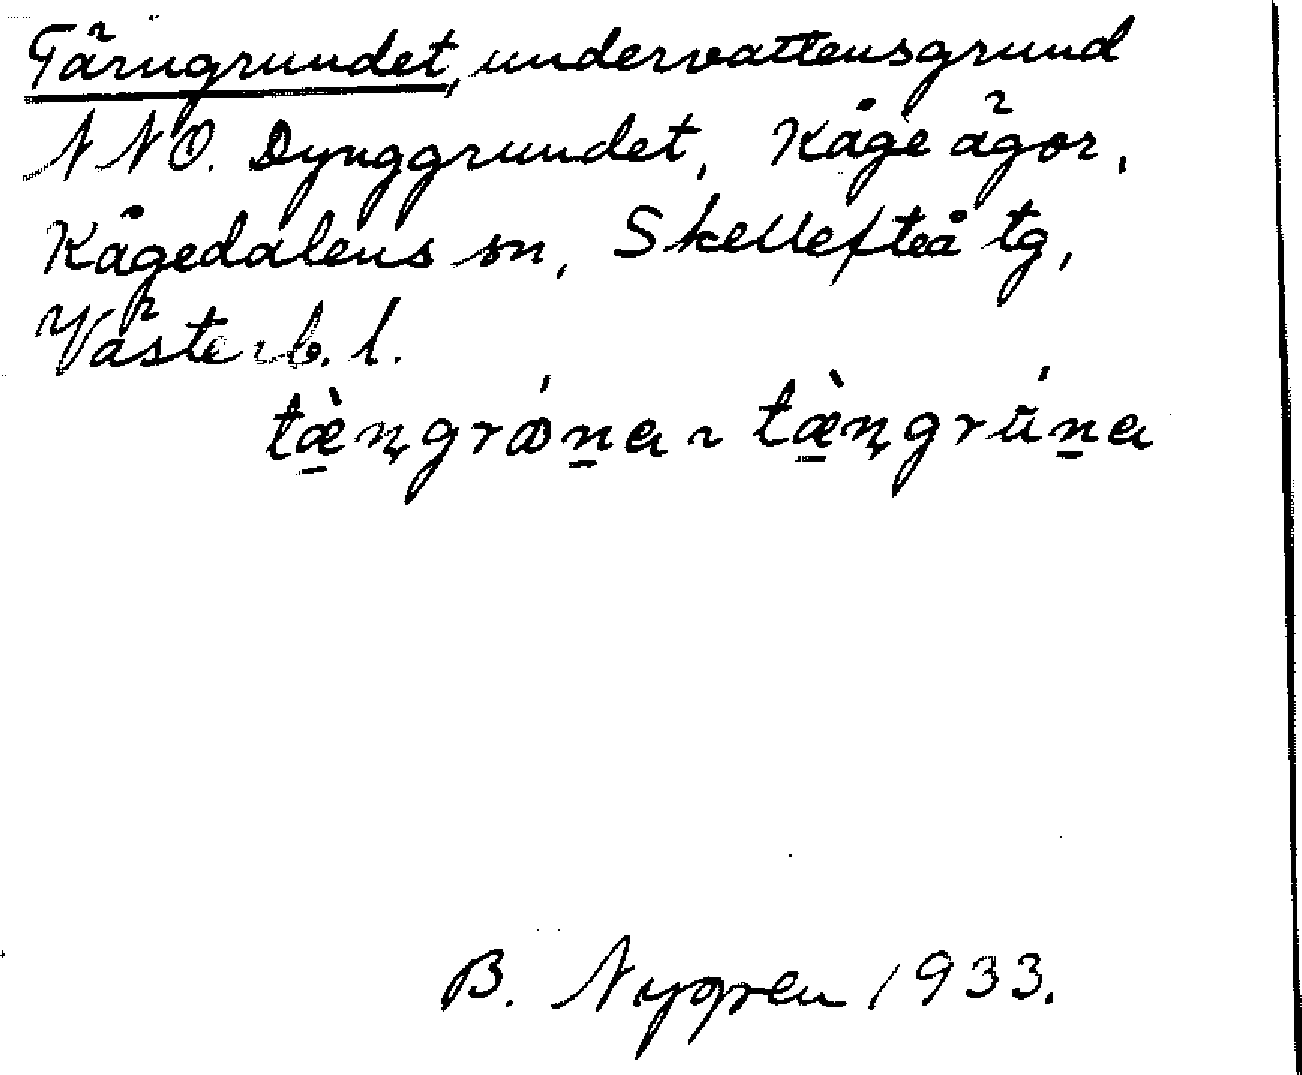 Tärngrundet, undervattensgrund
NNO. Dynggrundet, Kåge ägor,
Kågedalens sn, Skellefteå tg,
Västerb. l.
tæ̱̀ƞgrωńa ~ tæ̱̀ƞgrúna
B. Nygren 1933.